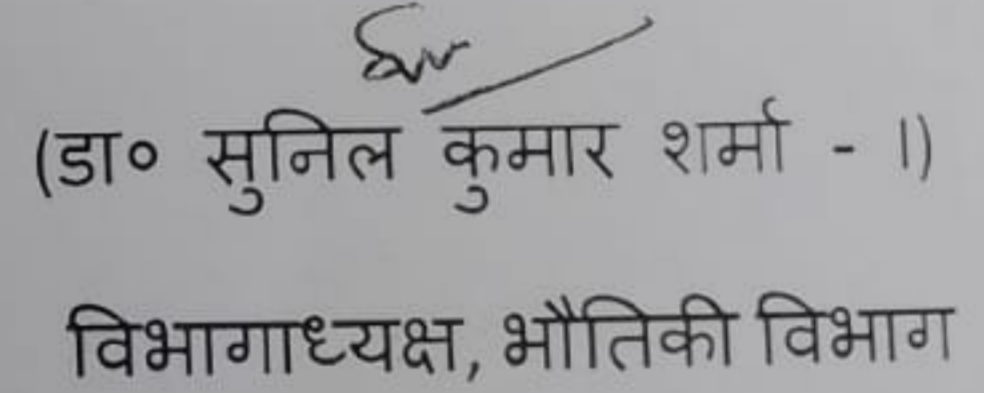 (डा० सुनिल कुमार शर्मा - ।)
विभागाध्यक्ष, भौतिकी विभाग